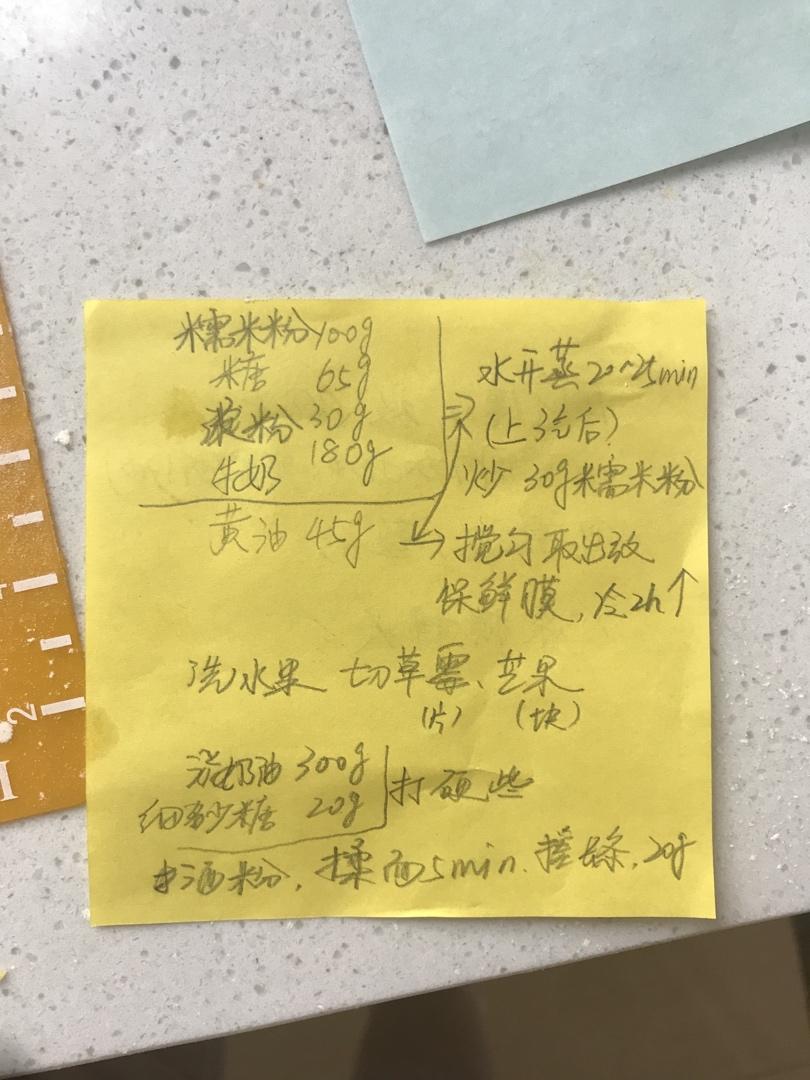 糯米粉100g
糖 65g
淀粉30g
牛奶 180g
黄油 45g
水开蒸20~25min
(上汽后)
炒 30g糯米粉
搅匀取出放
保鲜膜,冷2h↑
洗水果 切草莓、芒果
(片) (块)
淡奶油 300g
细砂糖 20g
打硬些
洒粉, 揉面5min. 搓长条, 20g
2
1